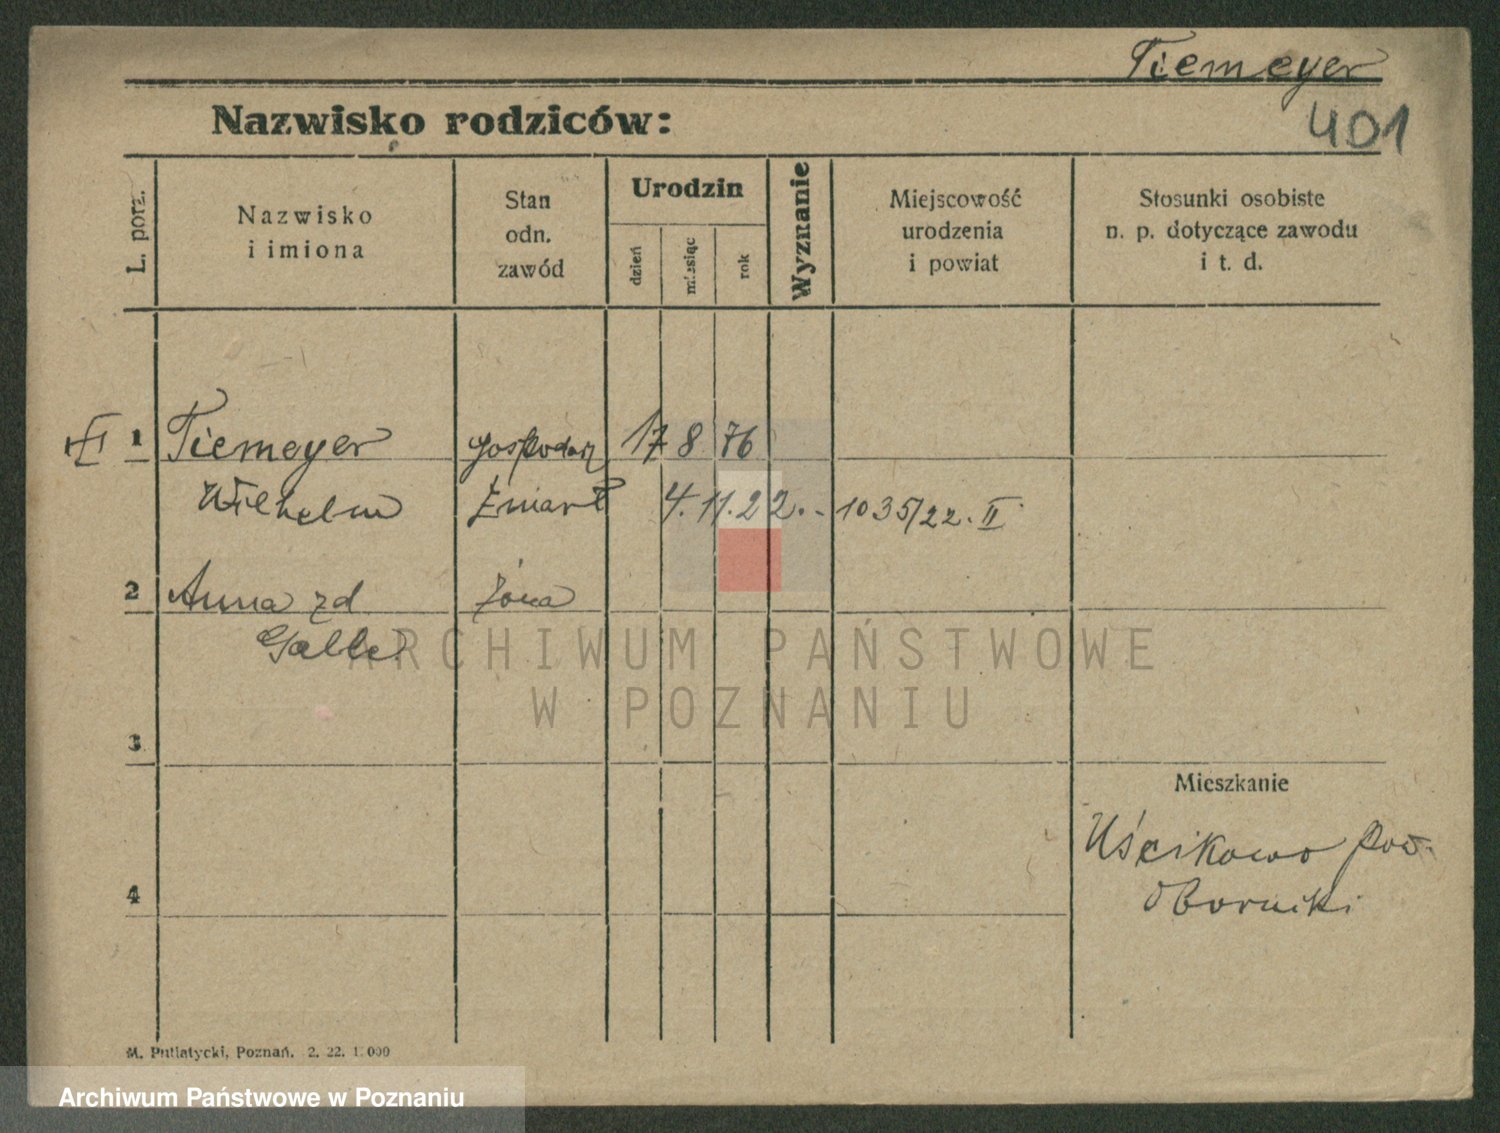 Tiemeyer
Nazwisko rodziców:
401
L. porz.
Nazwisko
i imiona
Stan
odn.
zawód
Urodzin
dzień
miesiąc
rok
Wyznanie
Miejscowość
urodzenia
i powiat
Stosunki osobiste
n. p. dotyczące zawodu
i t. d.
1 Tiemeyer gospodarz 17 8 76
Wilhelm Zmarł 4.11.22. 1035/22. II
2 Anna zd żona
ARCHIWUM PAŃSTWOWE
W POZNANIU
3
Mieszkanie
Uścikowo pow.
Oborniki
4
M. Putiatycki, Poznań. 2. 22. 1000
Archiwum Państwowe w Poznaniu